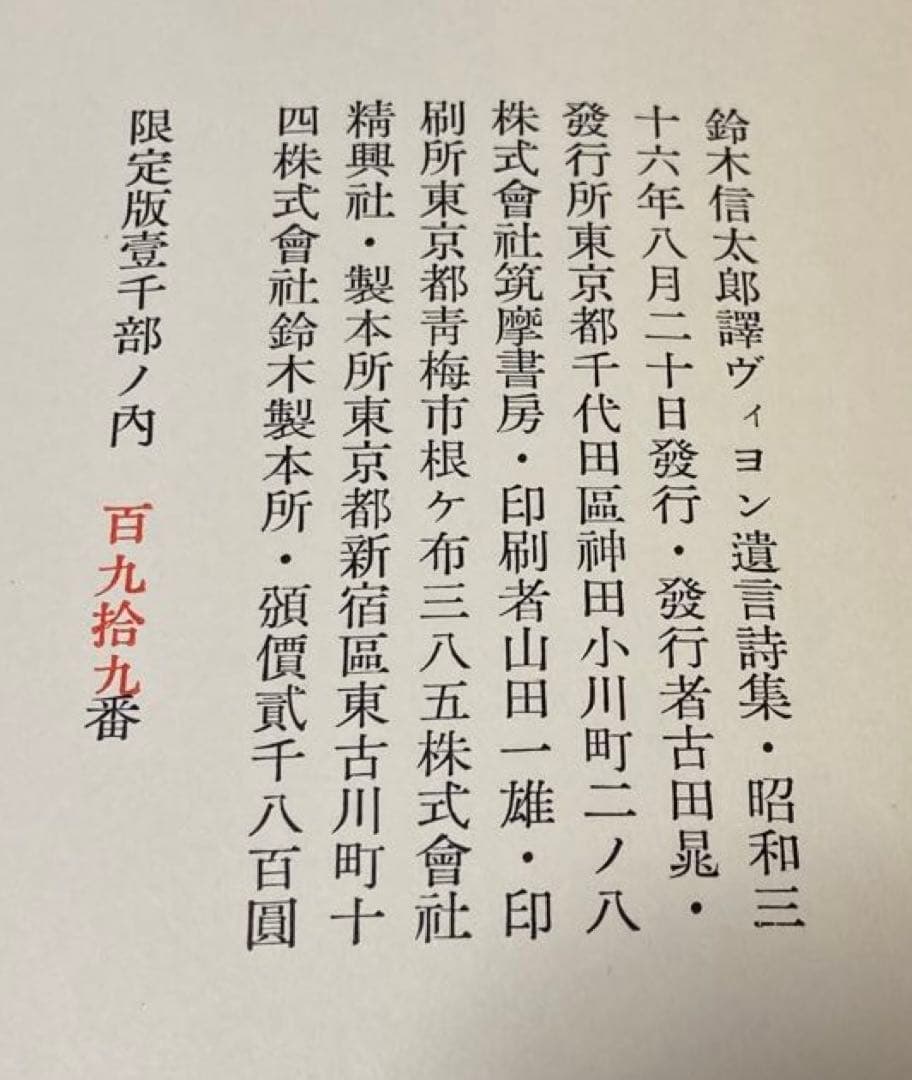 鈴木信太郎譯ヴィヨン遺言詩集・昭和三
十六年八月二十日發行・發行者古田晁・
發行所東京都千代田區神田小川町二ノ八
株式會社筑摩書房・印刷者山田一雄・印
刷所東京都靑梅市根ヶ布三八五株式會社
精興社・製本所東京都新宿區東古川町十
四株式會社鈴木製本所・頒價貳千八百圓
限定版壹千部ノ內　百九拾九番